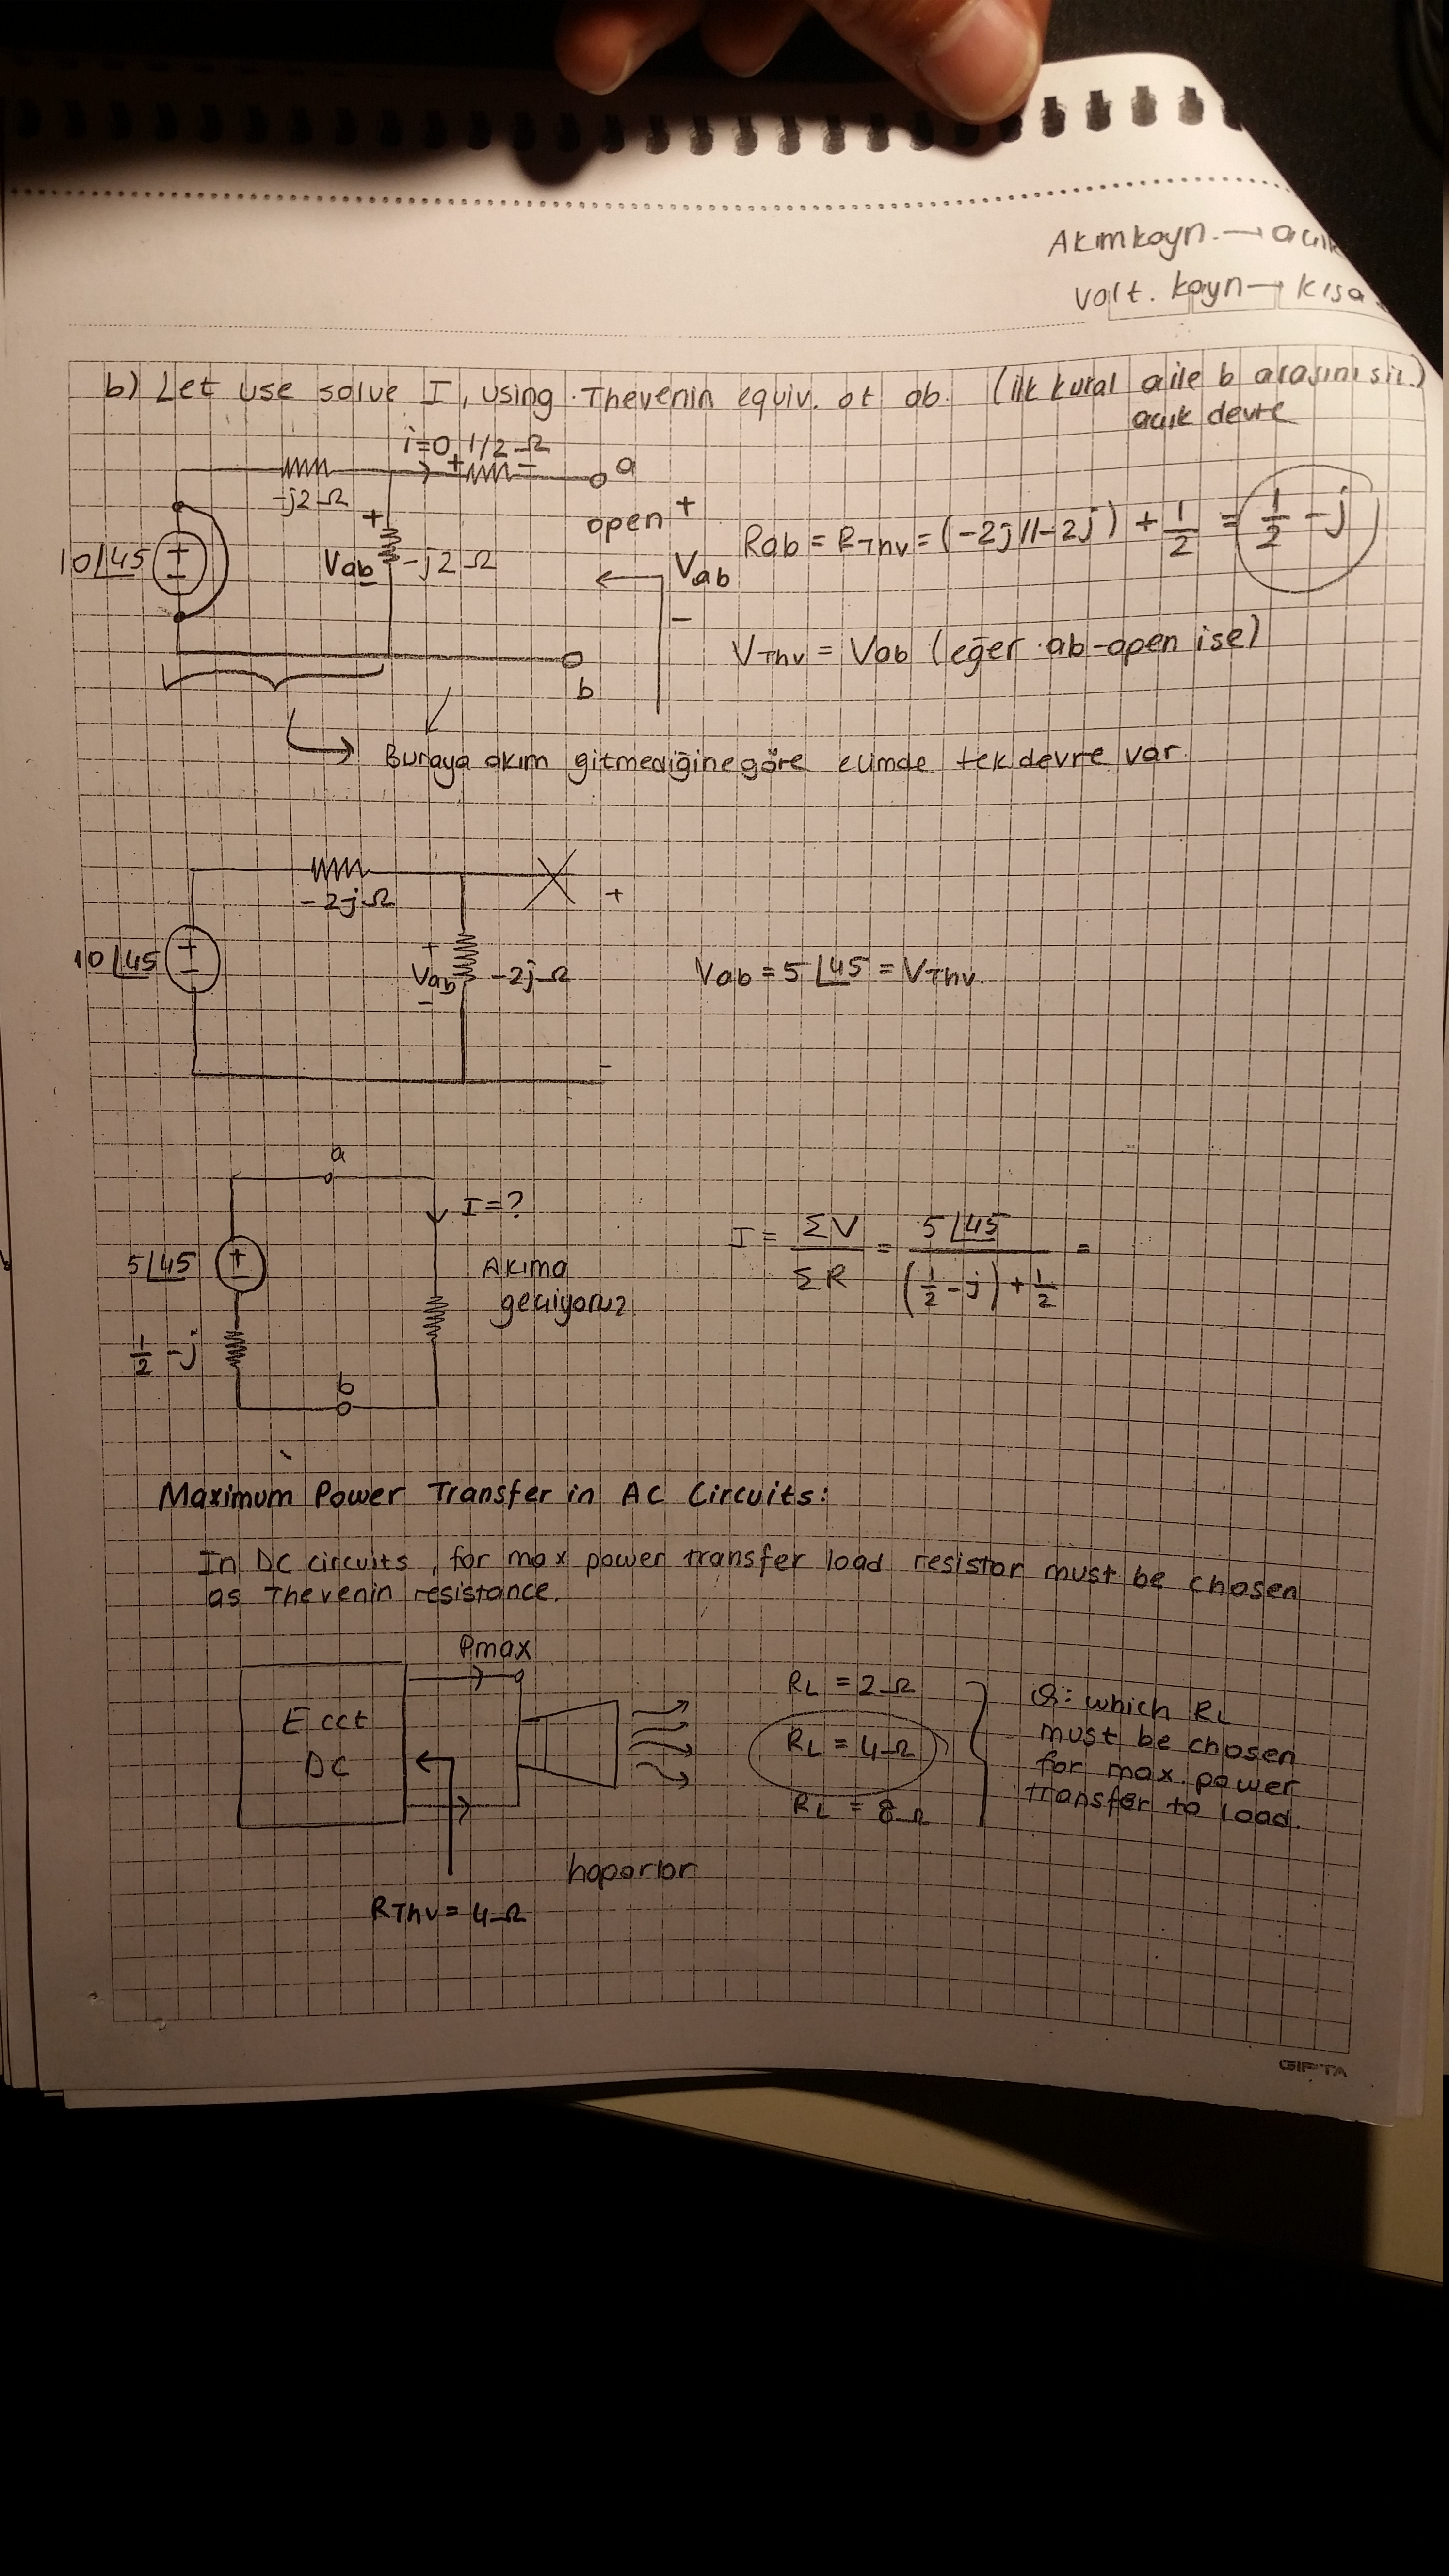 Akım kayn. → açık
Volt. kayn → kısa
b) Let use solve I, using Thevenin equiv. at ab. (ilk kural a ile b arasını sil.)
açık devre
i=0 1/2 Ω
+ − a
-j2 Ω
open +
10∠45 + −
+ Vab − -j2 Ω
Vab
−
b
Rab = RThv = (-2j//-2j) + 1/2 = 1/2 - j
VThv = Vab (eğer ab-open ise)
Buraya akım gitmediğine göre elimde tek devre var.
-2jΩ
+
10∠45 + −
+ Vab − -2jΩ
−
Vab = 5∠45 = VThv.
a
I=?
5∠45 + −
Akıma
geçiyoruz
1/2 - j
b
I = ΣV/ΣR = 5∠45/((1/2 - j) + 1/2) =
Maximum Power Transfer in AC Circuits:
In DC circuits, for max power transfer load resistor must be chosen
as Thevenin resistance.
Pmax
E cct
DC
RThv = 4Ω
hoparlor
RL = 2Ω
RL = 4Ω
RL = 8Ω
Q: which RL
must be chosen
for max. power
transfer to load.
GIPTA